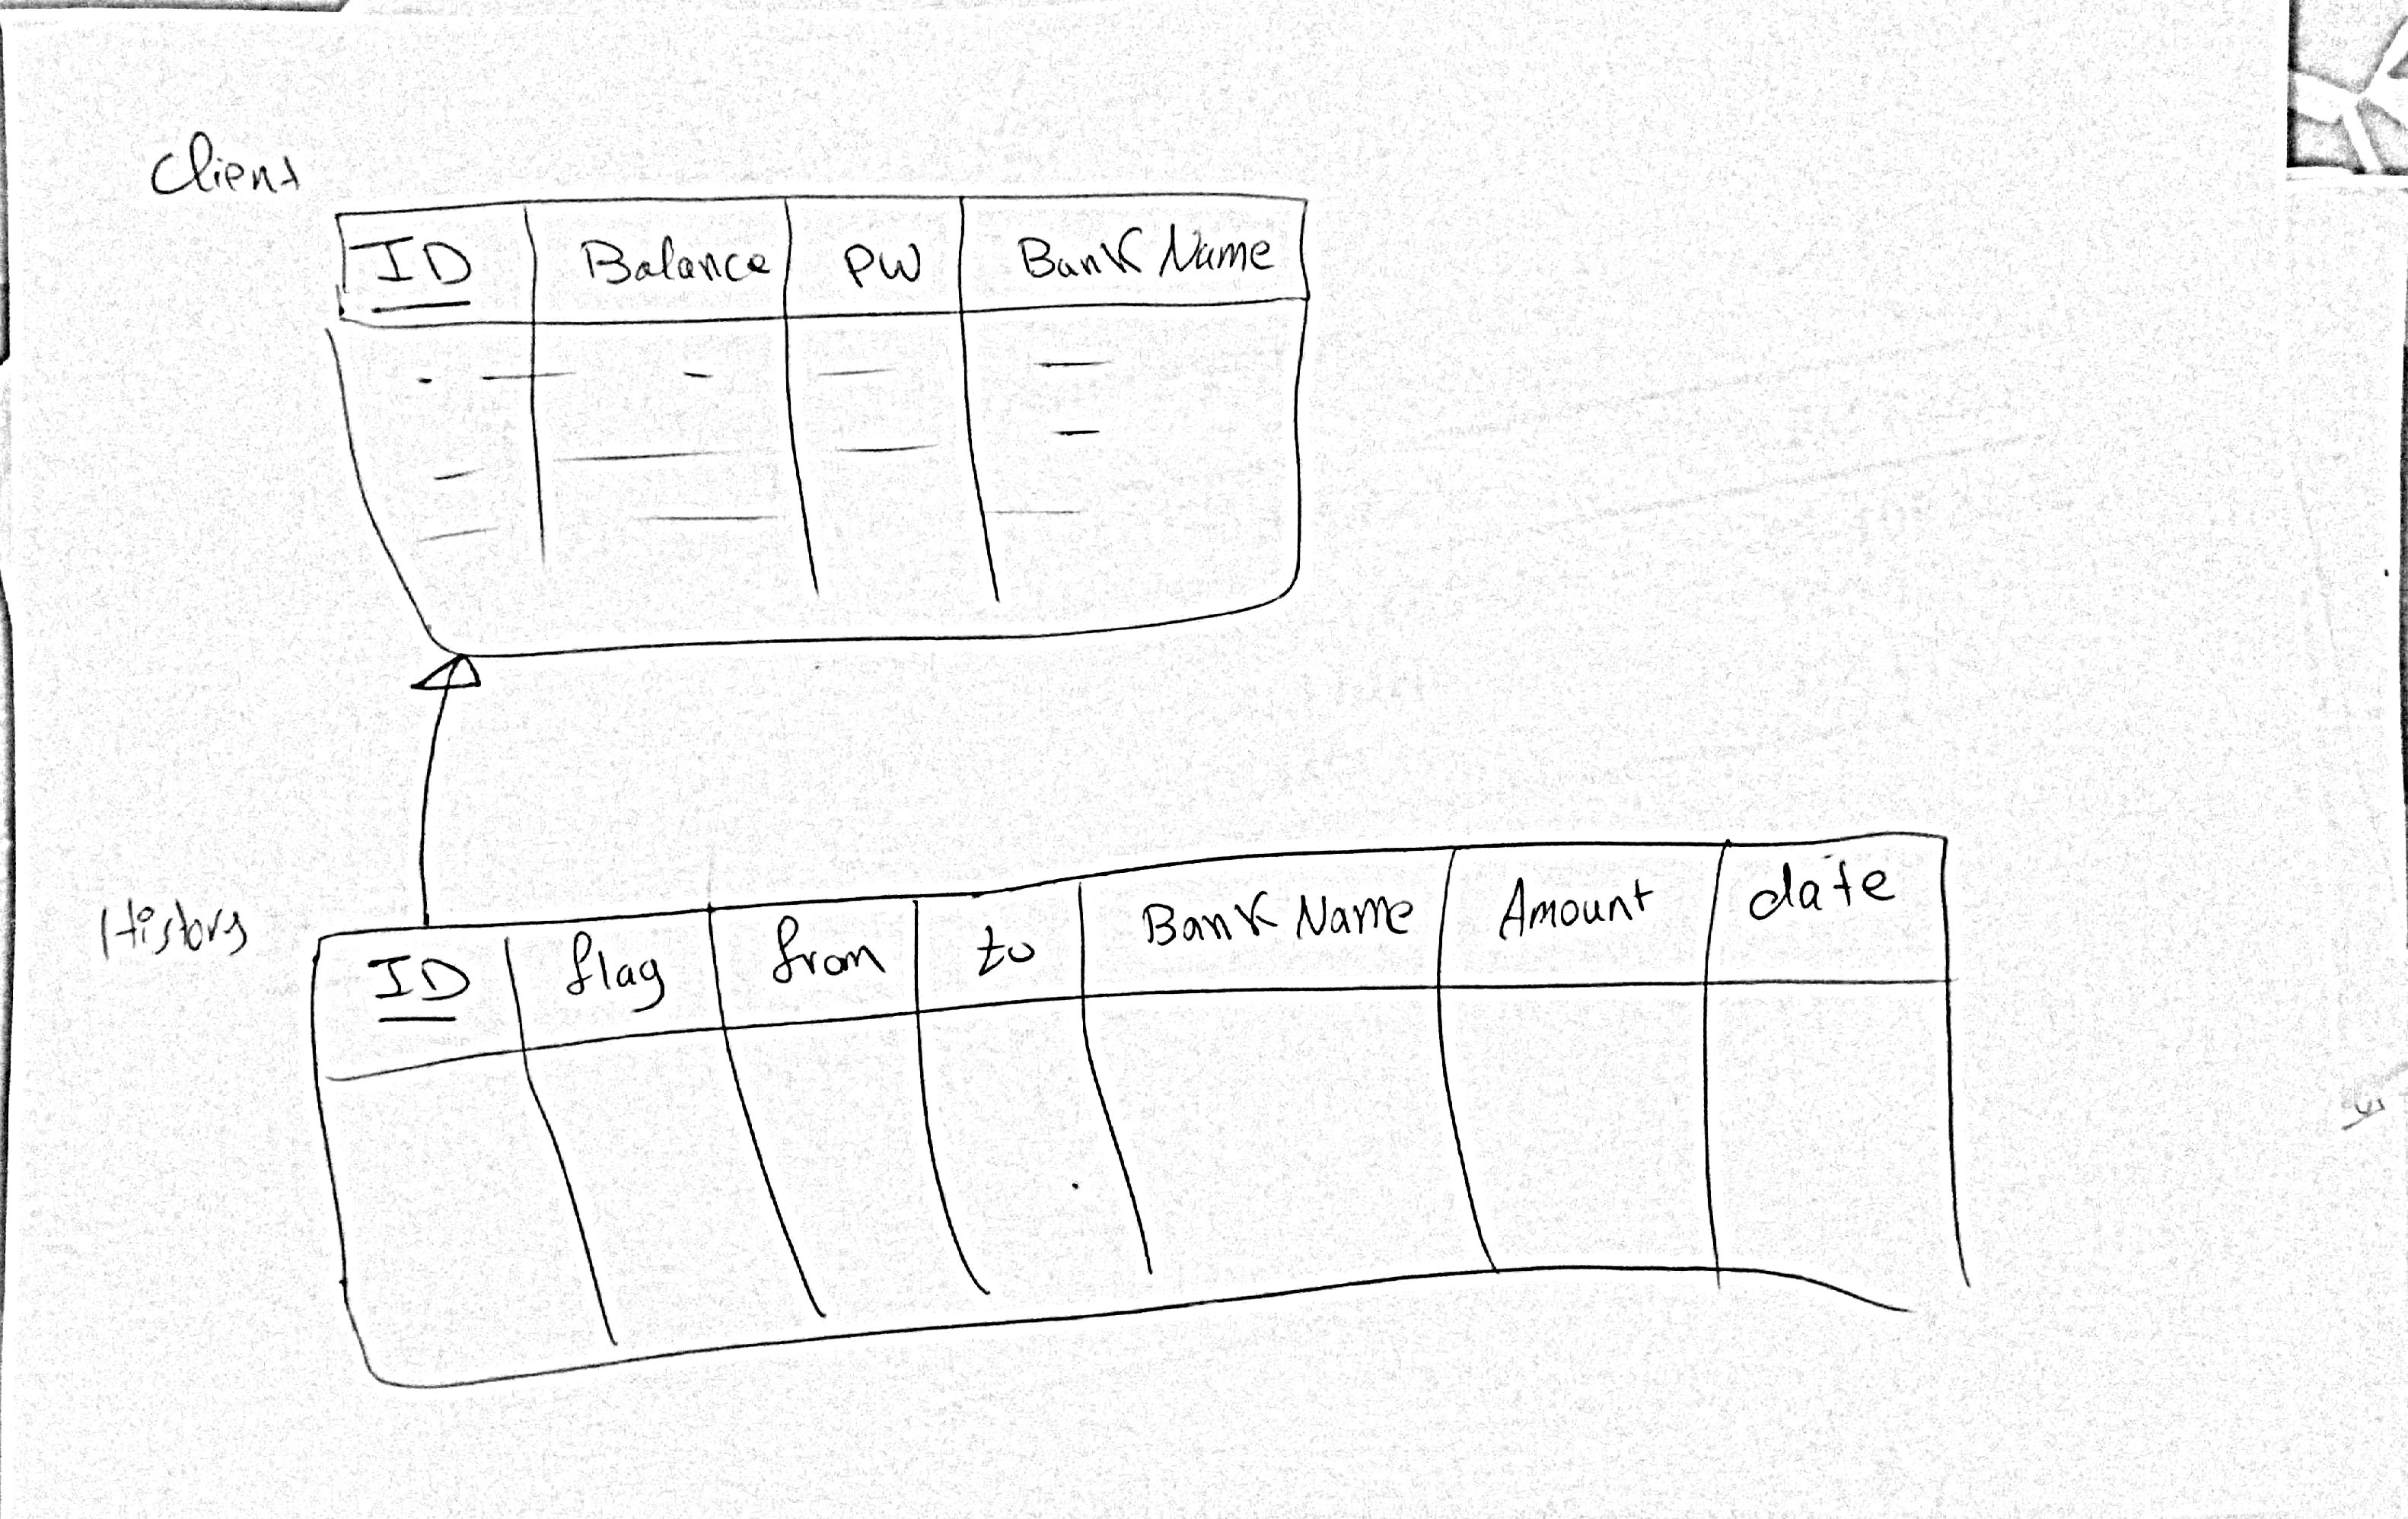 Client
ID Balance PW Bank Name
History
ID flag from to Bank Name Amount date